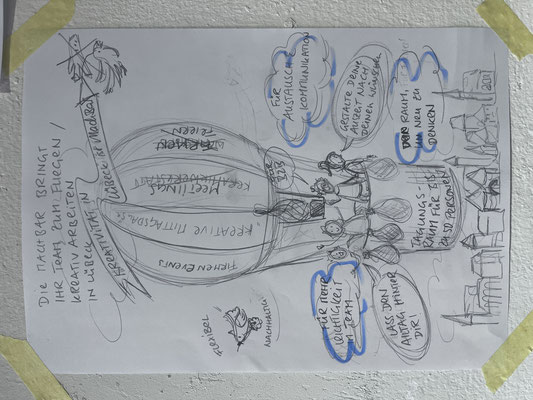 DIE MACHBAR BRINGT
IHR TEAM ZUM FLIEGEN /
KREATIV ARBEITEN
IN LÜBECK
KREATIVITÄT IN
LÜBECK IST MACHBAR
FEIERN
MEETINGS
KREATIVE MITTAGSPAUSE
FIRMEN EVENTS
FÜR
B2B
FÜR
AUSTAUSCH
KOMMUNIKATION
GESTALTE DEINE
AUSZEIT NACH
DEINEN WÜNSCHEN
RAUM,
NEU ZU
DENKEN
TAGUNGS-
RAUM FÜR BIS
ZU 50 PERSONEN
FLEXIBEL
NACHHALTIG
FÜR MEHR
LEICHTIGKEIT
IM TEAM
LASS DEN
ALLTAG HINTER
DIR!